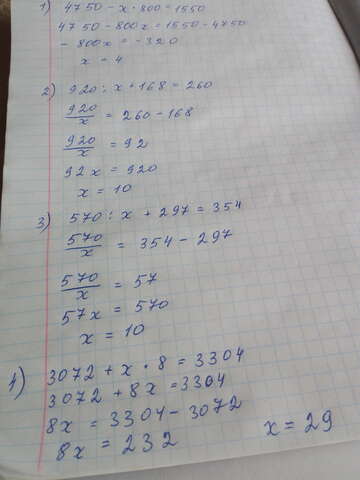 1) 4750 - x · 800 = 1550
4750 - 800x = 1550 - 4750
- 800x = -320
x = 4
2) 920 : x + 168 = 260
920/x = 260 - 168
920/x = 92
92x = 920
x = 10
3) 570 : x + 297 = 354
570/x = 354 - 297
570/x = 57
57x = 570
x = 10
4) 3072 + x · 8 = 3304
3072 + 8x = 3304
8x = 3304 - 3072
8x = 232
x = 29